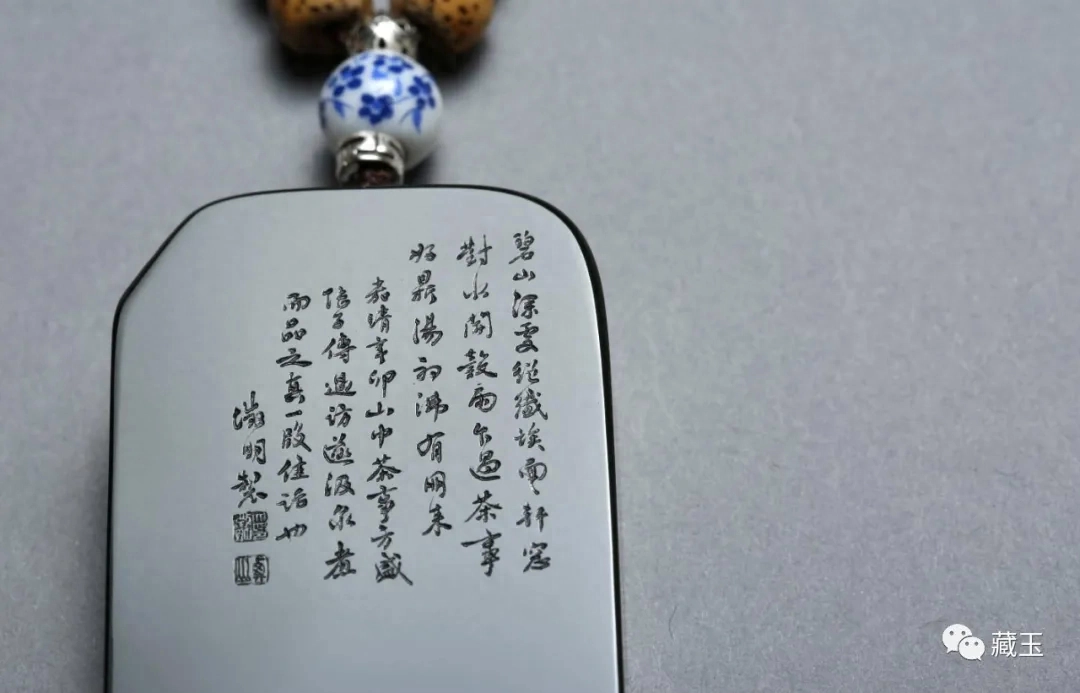 碧山深處絕纖埃面々軒窓
對水開穀雨乍過茶事
好鼎湯初沸有朋來
嘉靖辛卯山中茶事方盛
陸子傳過訪遂汲泉煮
而品之真一段佳話也
徵明製
藏玉